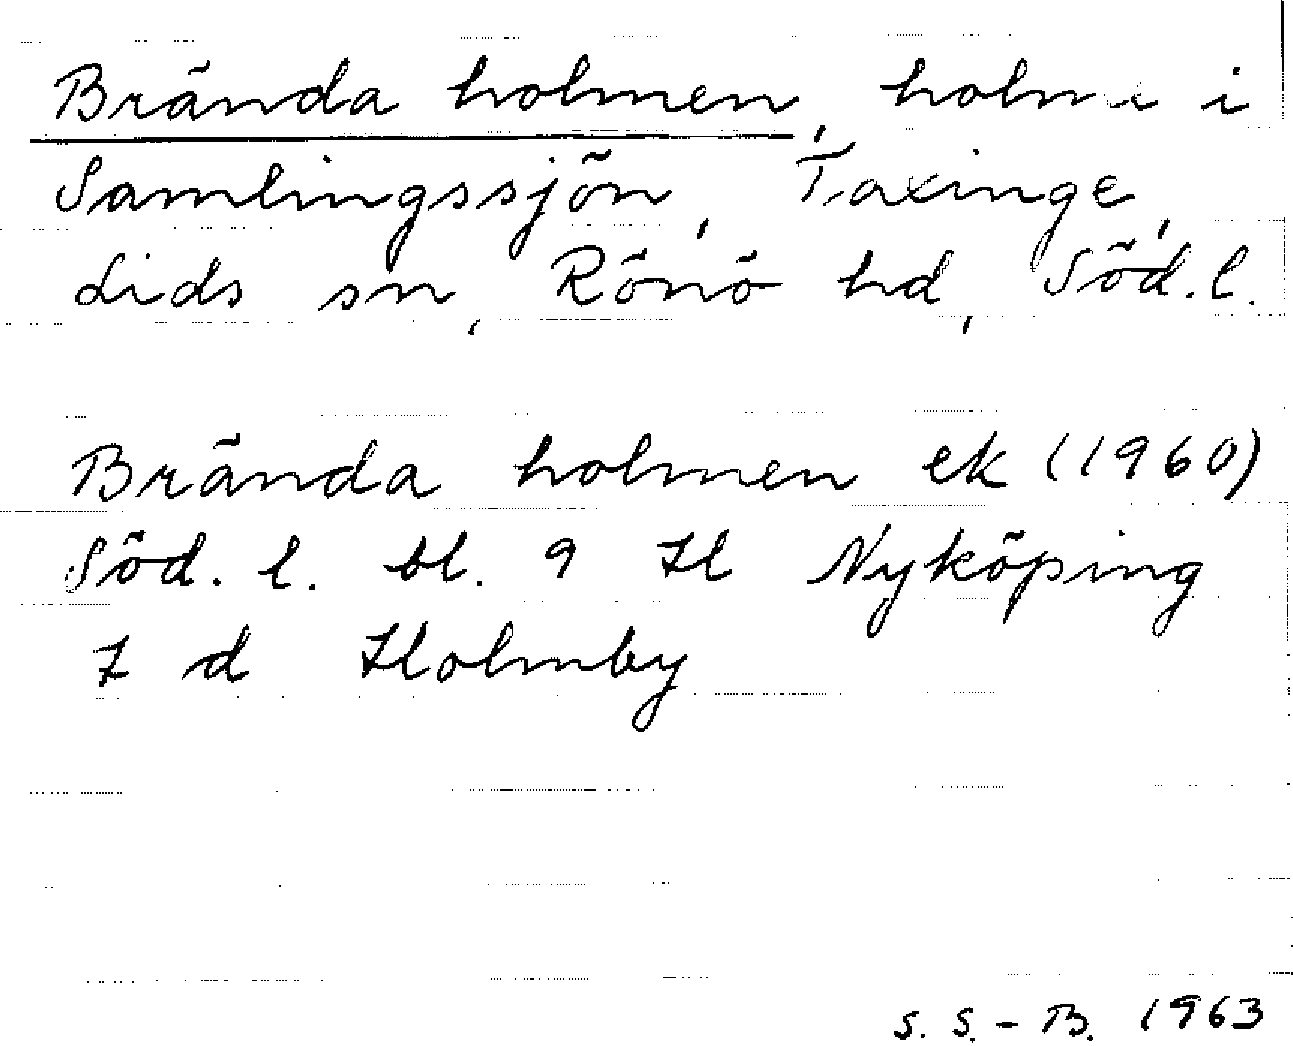 Brända holmen, holme i
Samlingssjön, Taxinge,
Lids sn, Rönö hd, Söd.l.
Brända holmen ek (1960)
Söd. l. bl. 9 H Nyköping
7 d Holmby
S. S. - B. 1963